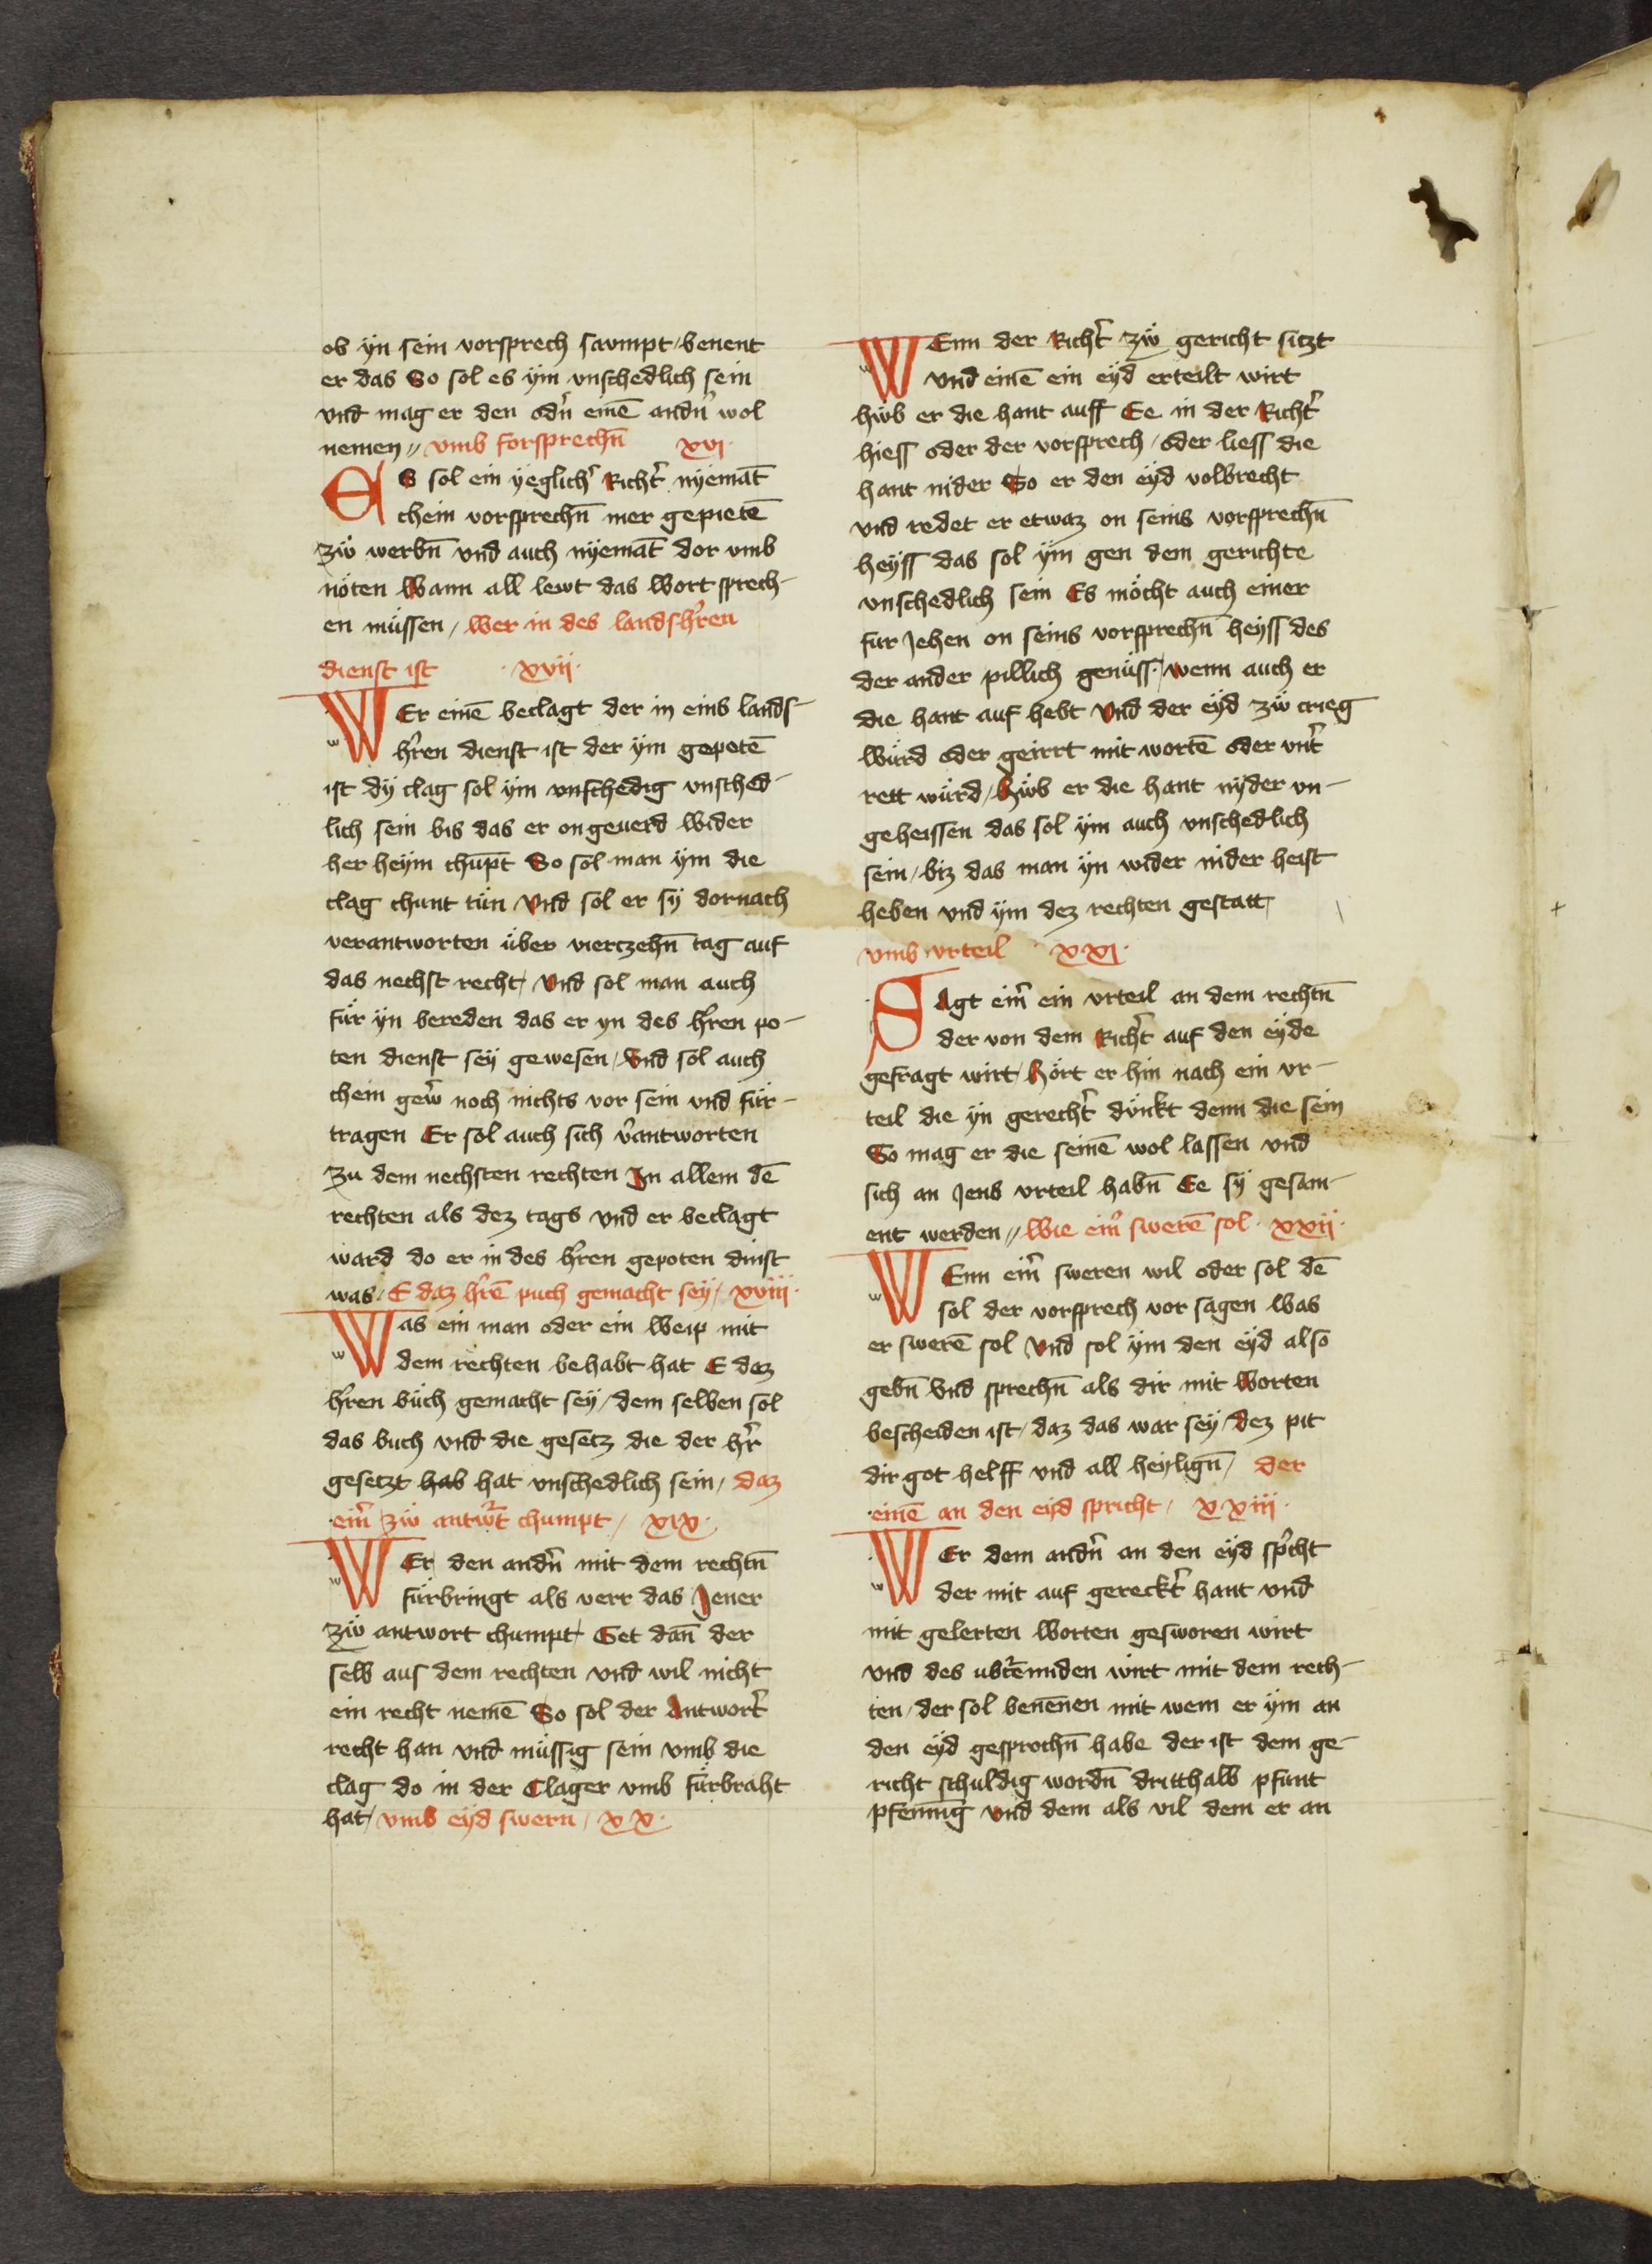 ob ÿn sein vorsprech savmpt / benent
er das So sol es ÿm vnschedlich sein
vnd mag er den odn̄ einē andn̄ wol
nemen // vmb forsprechn̄ xvj·
ES sol ein ÿeglichr̄ Richtr̄ nÿemāt
chein vorsprechn̄ mer gepietē
zẅ werbn̄ vnd auch nÿemāt dor vmb
nöten Wann all lewt das Wort sprech-
en müssen / Wer in des landshr̄en
dienst ist ·xvij·
WEr einē beclagt der in eins lands-
hr̄en dienst ist der ÿm gepotē
ist dÿ clag sol ÿm vnschedig vnsched-
lich sein bis das er on geuerd wider
her heÿm chūpt So sol man ÿm die
clag chunt tün Vnd sol er sÿ dornach
verantworten über vierczehn̄ tag auf
das nechst recht / Vnd sol man auch
für ÿn bereden das er yn des hr̄en po-
ten dienst seÿ gewesen / Vnd sol auch
chein gew̄r noch nichts vor sein vnd für-
tragen Er sol auch sich v̄antworten
zu dem nechsten rechten In allem dē
rechten als dez tags vnd er beclagt
ward do er in des hr̄en gepoten dinst
was / E daz hr̄ē puch gemacht seÿ / xviij·
Was ein man oder ein Weip mit
dem rechten behabt hat E daz
hr̄en büch gemacht seÿ / dem selben sol
das buch vnd die gesetz die der hr̄
gesetzt hab hat vnschedlich sein / daz
eīr zẅ antw̄t chumpt / xix·
WEr den andn̄ mit dem rechtn̄
fürbringt als verr das Jener
zẅ antwort chumpt / Get dan̄ der
selb aus dem rechten vnd wil nicht
ein recht nemē So sol der Antwortr̄
recht han vnd müssig sein vmb die
clag do in der Clager vmb fürbraht
hat / vmb eÿd swern / xx·
WEnn der Richtr̄ zẅ gericht siczt
Vnd einē ein eÿd erteilt wirt
hüb er die hant auff Ee in der Richtr̄
hiess oder der vorsprech / oder liess die
hant nider So er den eÿd volbrecht
vnd redet er etwaz on seins vorsprechn̄
heÿss das sol ÿm gen dem gerichte
vnschedlich sein Es möcht auch einer
für Jehen on seins vorsprechn̄ heÿss des
der ander pillich genüss / wenn auch er
die hant auf hebt Vnd der eÿd zẅ crieg
würd oder geirrt mit wortē oder vntr̄
rett würd / hüb er die hant nÿder vn-
geheissen das sol ÿm auch vnschedlich
sein / biz das man ÿn wider nider heist
heben vnd ÿm dez rechten gestatt /
vmb vrteil · xxj·
SAgt eīr ein vrteil an dem rechtn̄
der von dem Richtr̄ auf den eÿde
gefragt wirt / hört er hin nach ein vr-
teil die ÿn gerechtr̄ dünkt denn die sein
So mag er die seinē wol lassen vnd
sich an Jens vrteil habn̄ Ee sÿ gesam-
ent werden // Wie eīr swerē sol · xxij·
WEnn eīr sweren wil oder sol dē
sol der vorsprech vor sagen Was
er swerē sol Vnd sol ÿm den eÿd also
gebn̄ Vnd sprechn̄ als dir mit Worten
bescheiden ist / daz das war seÿ / dez pit
dir got helff vnd all heÿlign̄ / der
einē an den eÿd spricht / xxiij·
WEr dem andn̄ an den eÿd spͥcht
der mit auf gerecktr̄ hant vnd
mit gelerten Worten gesworen wirt
vnd des vbr̄ēinden wirt mit dem rech-
ten / der sol benēnen mit wem er ÿm an
den eÿd gesprochn̄ habe der ist dem ge-
richt schuldig wordn̄ dritthalb pfunt
pfennīg Vnd dem als vil dem er an